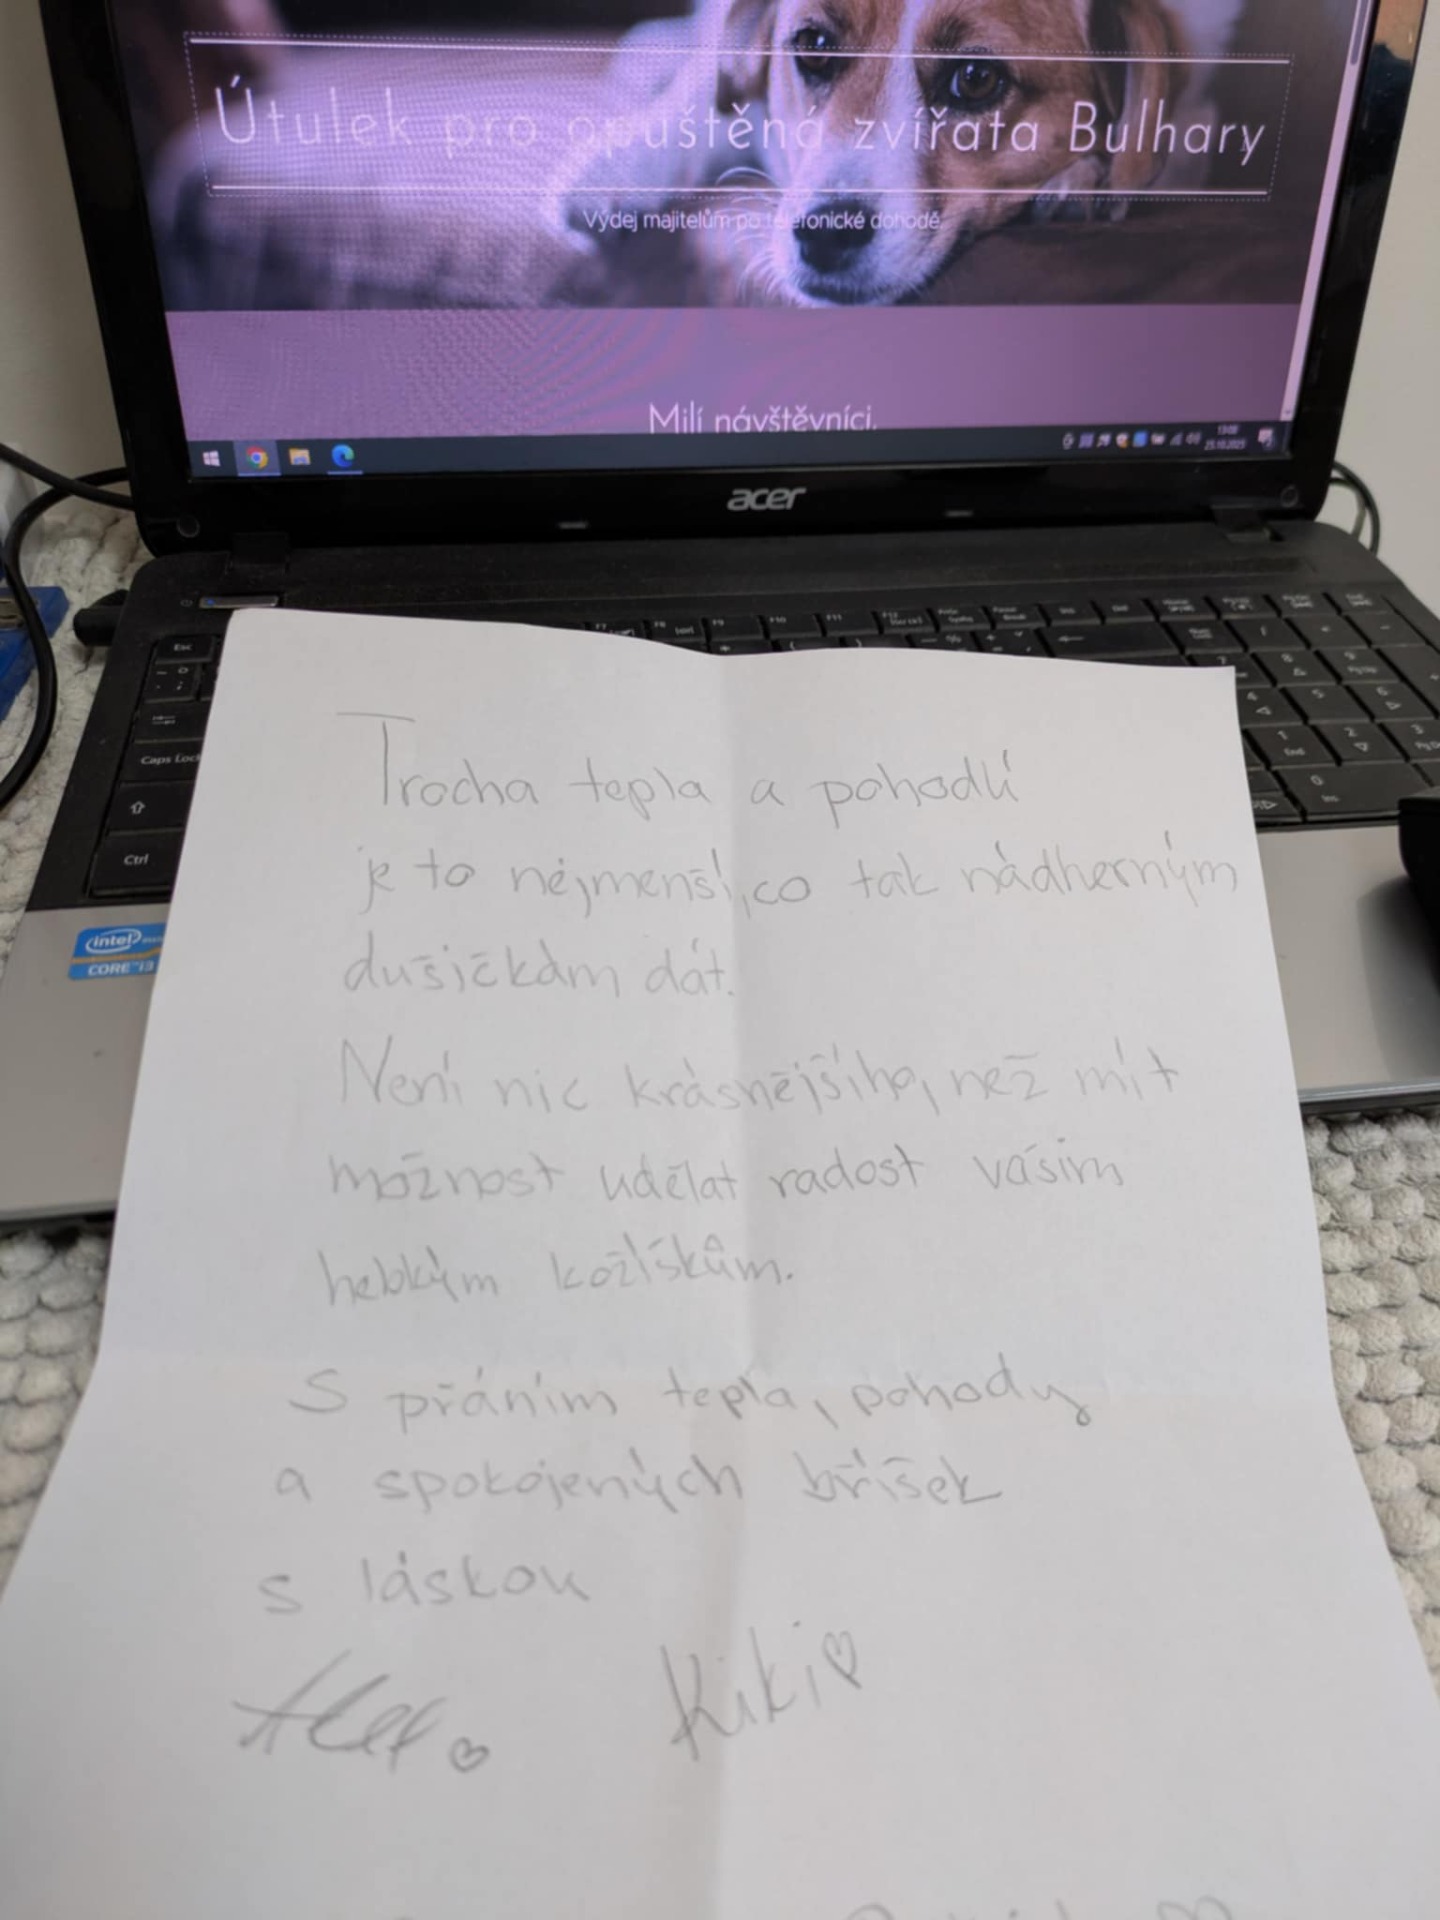 Útulek pro opuštěná zvířata Bulhary
Výdej majitelům po telefonické dohodě.
Milí návštěvníci,
13:08
23.10.2025
acer
F7
F8
F9
F10
F11
F12
Esc
Caps Lock
Ctrl
intel
CORE i3
Trocha tepla a pohodlí
je to nejmenší, co tak nádherným
dušičkám dát.
Není nic krásnějšího, než mít
možnost udělat radost vašim
hebkým kožíškům.
S přáním tepla, pohody
a spokojených bříšek
s láskou
Kiki